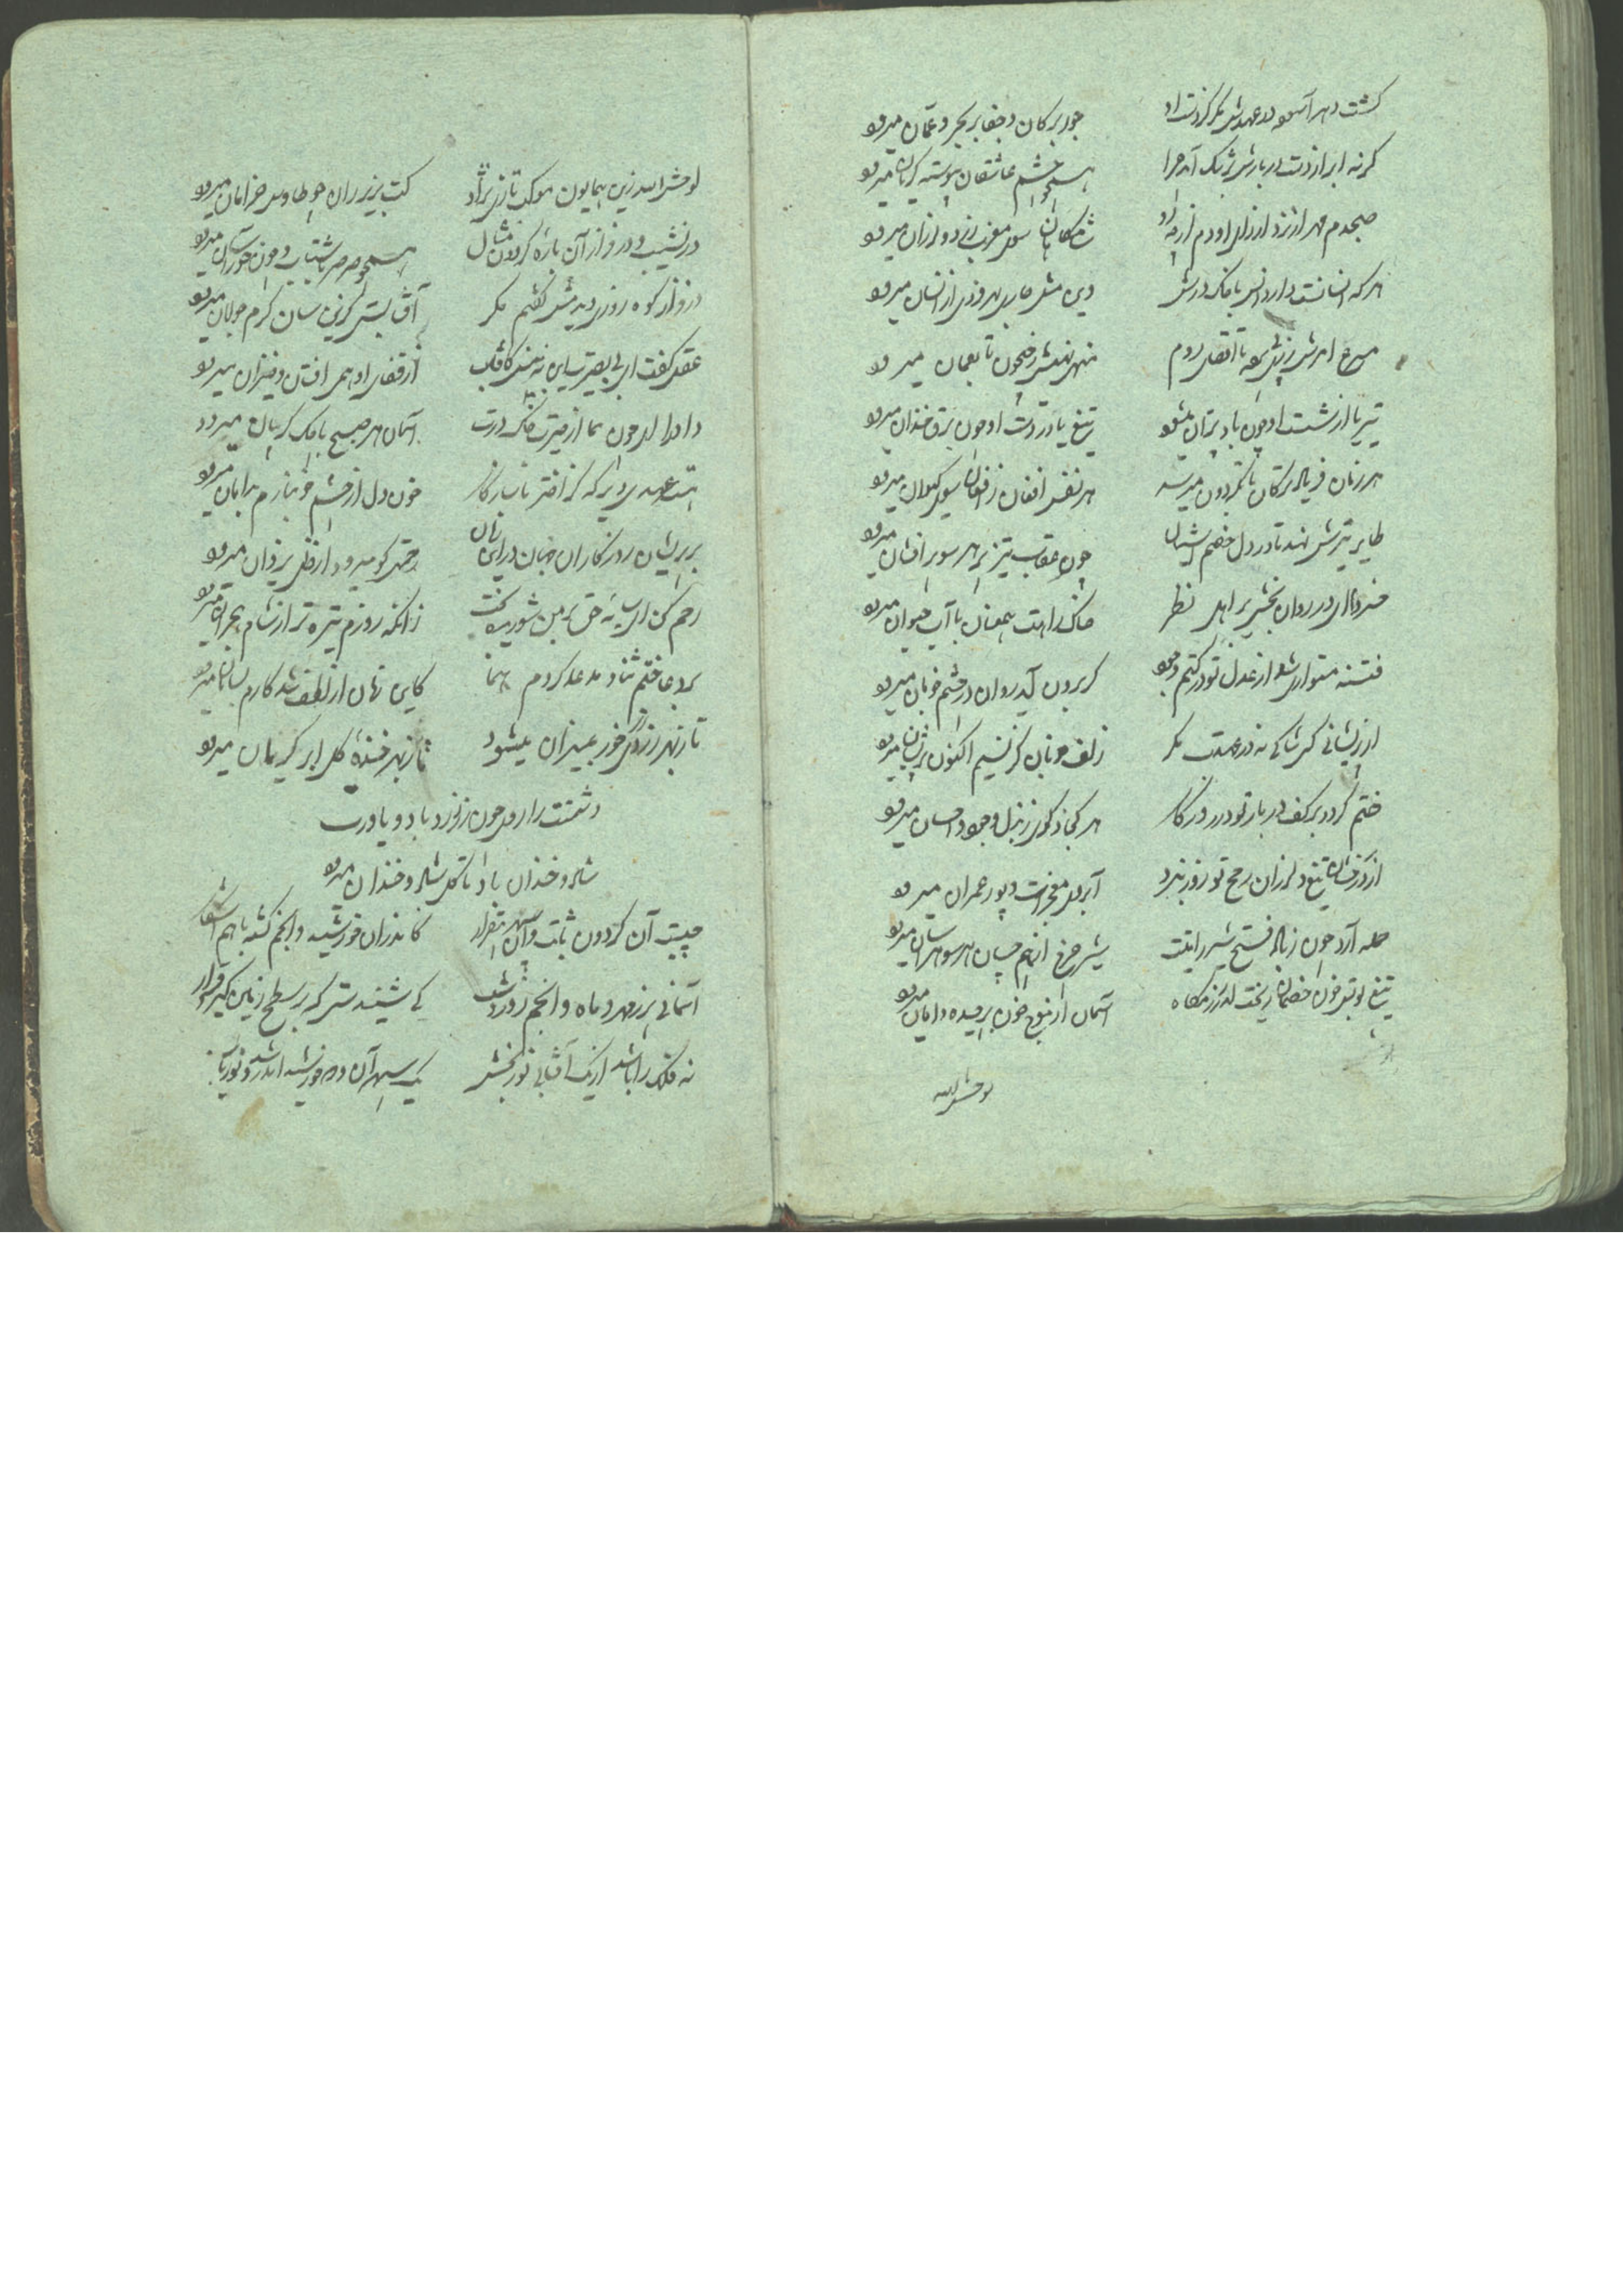 گشت دهر آسوده در عهدش مگر کز دست او جور بر کان و جفا بر بحر و عمان میرود
گرنه ابر از دست در بارش برشک آمد چرا همچو چشم عاشقان پیوسته گریان میرود
صبحدم مهر از نزد از رای او دم از چه رو شامگاهان سوی مغرب زرد و لرزان میرود
هر که انسانست دارد انس با خاک درش وین مثل جاری بهر فردی از انسان میرود
تا اقصای روم تا بعمان میرود
تیر یا از شست او چون باد پران میشود تیغ یا در دست او چون برق خندان میرود
هر زمان فریاد ترکان تا بگردون میرسد هر نفس افغان ز افغان سوی کیوان میرود
طایر تیرش نهد تا در دل خصم آشیان چون عقاب تیز پر هر سو پر افشان میرود
خسروا ای در روان بخشی بر اهل نظر خاک راهت همعنان با آب حیوان میرود
فتنه متواری شد از عدل تو در کتم عدم گر برون آید روان در چشم خوبان میرود
از پریشانی کس شاکی نه در عهدت مگر زلف خوبان کز نسیم اکنون پریشان میرود
ختم گردد بر کف در بار تو در روزگار هر کجا ذکری ز بذل و جود و احسان میرود
از درفشان تیغ و لرزان رمح تو روز نبرد آبروی معجزات پور عمران میرود
حمله آرد چون زباد فتح شیر رایتت شیر چرخ از بیم جان هر سو هراسان میرود
تیغ تو بس خون خصمان ریخت در رزمگاه آسمان از موج خون بر چیده دامان میرود
لوحش الله
لوحش الله زین همایون موکب تازی نژاد کت بزیر ران چو طاوس خرامان میرود
در نشیب و در فراز آن باره گردون مثال همچو صرصر با شتاب و چون خور آسان میرود
در فراز کوه روزی دیدمش گفتم مگر آفتابستی کزین سان گرم جولان میرود
عقل گفت ای بی بصیرت سایه نبینی کافتاب از قفای او همی افتان و خیزان میرود
داورا ای چون سما از غیرت خاک درت آسمان هر صبح با چاک گریبان میرود
خون دل از چشم خونبارم بدامان میرود
بر پریشان روزگاران جهان در این زمان رحمتی کو میرود از فضل یزدان میرود
رحم کن ای سایه حق بر من شوریده بخت زانکه روزم تیره تر از شام هجران میرود
بر دعا ختم ثنا و مدعا کردم هما کاین زمان از لطف شه کارم بسامان میرود
تا ز بهر زر زردی خور بمیزان میشود تا ز بهر خنده گل ابر گریان میرود
دشمنت را روی چون زر زرد باد و یاورت
شاد و خندان باد تا گل شاد و خندان میرود
چیست آن گردون ثابت وان سپهر بیقرار کاندران خورشید و انجم گشته با هم آشکار
آسمانی پر ز مهر و ماه و انجم روز و شب کی شنیدستی که بر سطح زمین گیرد قرار
نه فلک را باشد ار یک آفتاب نور بخش یک سپهر آن وده خورشید اندر و نور بار